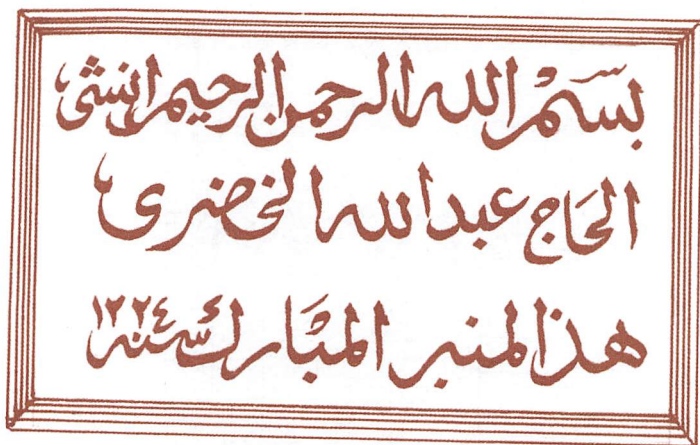 بسم الله الرحمن الرحيم انشى
الحاج عبدالله الخضرى
هذا المنبر المبارك سنه ١٢٢٤